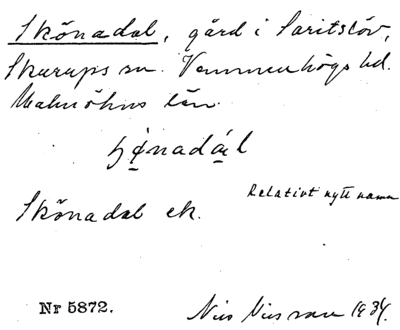 Skönadal, gård i Saritslöv,
Skurups sn. Vemmenhögs hd.
Malmöhus län.
Relativt nytt namn
Skönadal ek.
Nr 5872.
Nils Nilsson 1934.